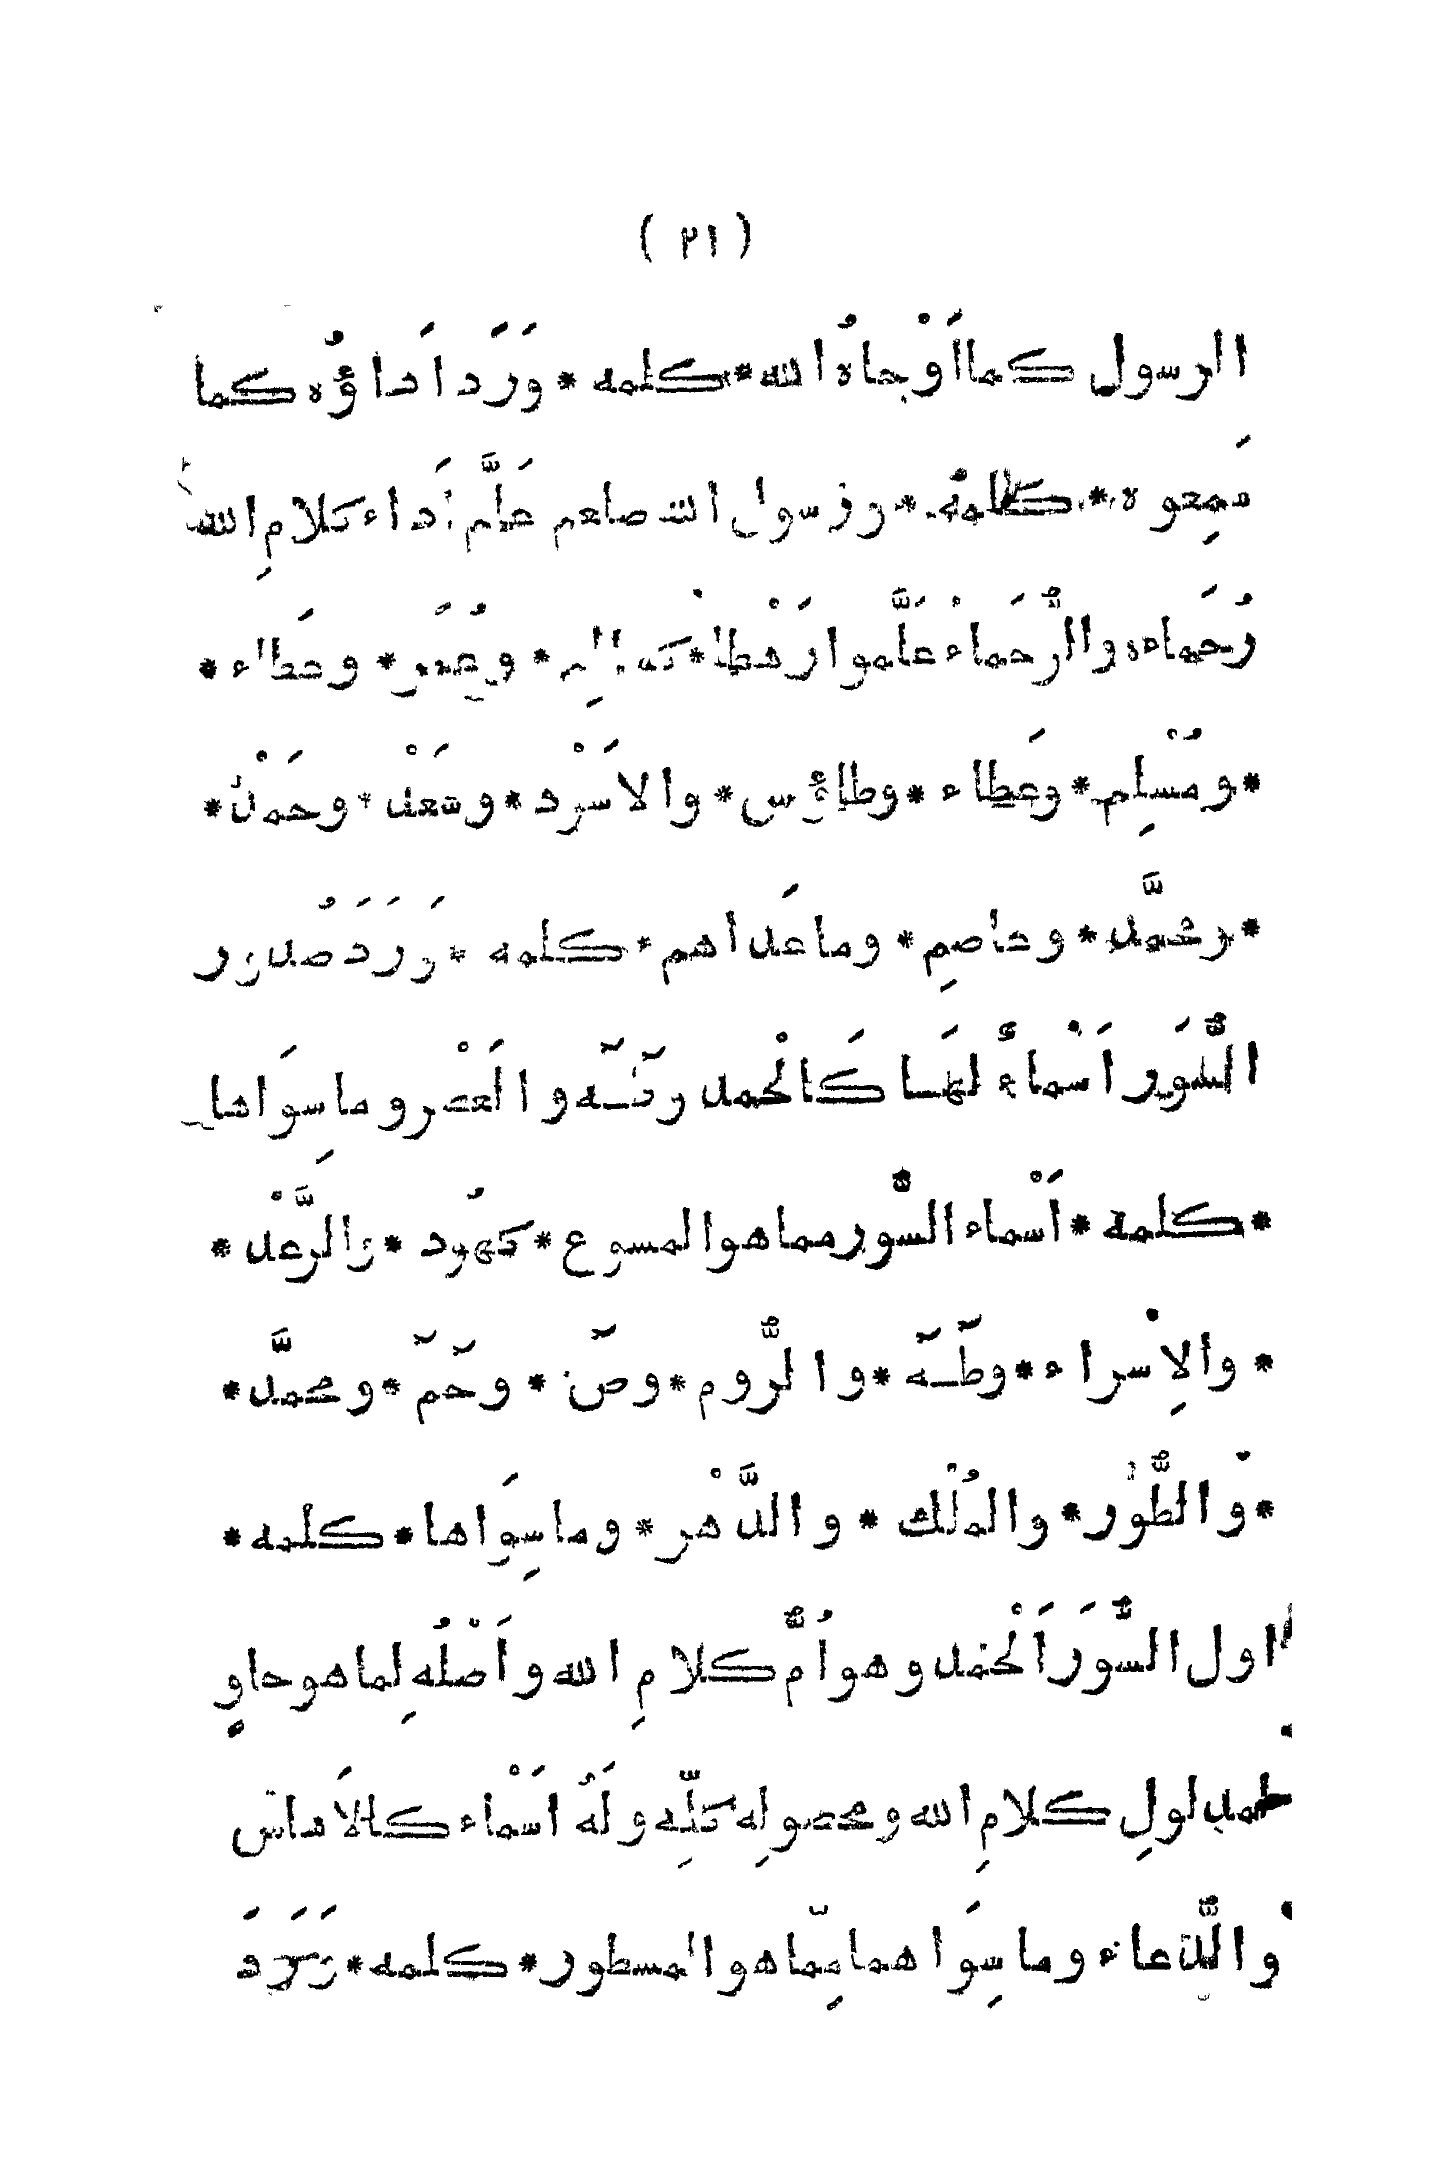 ( ٢١ )
الرسول كما اَوْحاهُ الله * كلمه * ورَدَ اَداؤُه كما
سَمِعوه * كلمه * ورسول الله صلعم علَّم اَداء كلامِ الله
رُحَماءه والرُّحَماء علَّموا رَهْطا * * وعُمَر * وعطاء *
* ومُسْلِم * وعَطاء * وطاؤس * والاَسْود * وسَعْد * وحَمْد *
* ومحمَّد * وعاصِم * وما عَداهم * كلمه * ورَدَ صُدور
السُّوَر اَسْماءً لها كَالْحمد و والْعَصر وما سِوَاها
* كلمة * اَسْماء السُّور مما هو المسموع * كهُود * والرَّعْد *
* والاِسْراء * وطٓـهٓ * والرُّوم * وصٓ * وحٓمٓ * ومحمَّد *
* والطُّوْر * والمُلْك * والدَّهْر * وما سِوَاها * كلمه *
اول السُّوَر اَلْحَمْد وهو اُمُّ كلامِ الله واَصْلُه لِما هو حاوٍ
لمدلولِ كلامِ الله ومحصولِه كلِّه ولَهُ اَسْماء كالاَساس
والدُّعاء وما سِوَاهما مِمّا هو المسطور * كلمه * ورَدَ